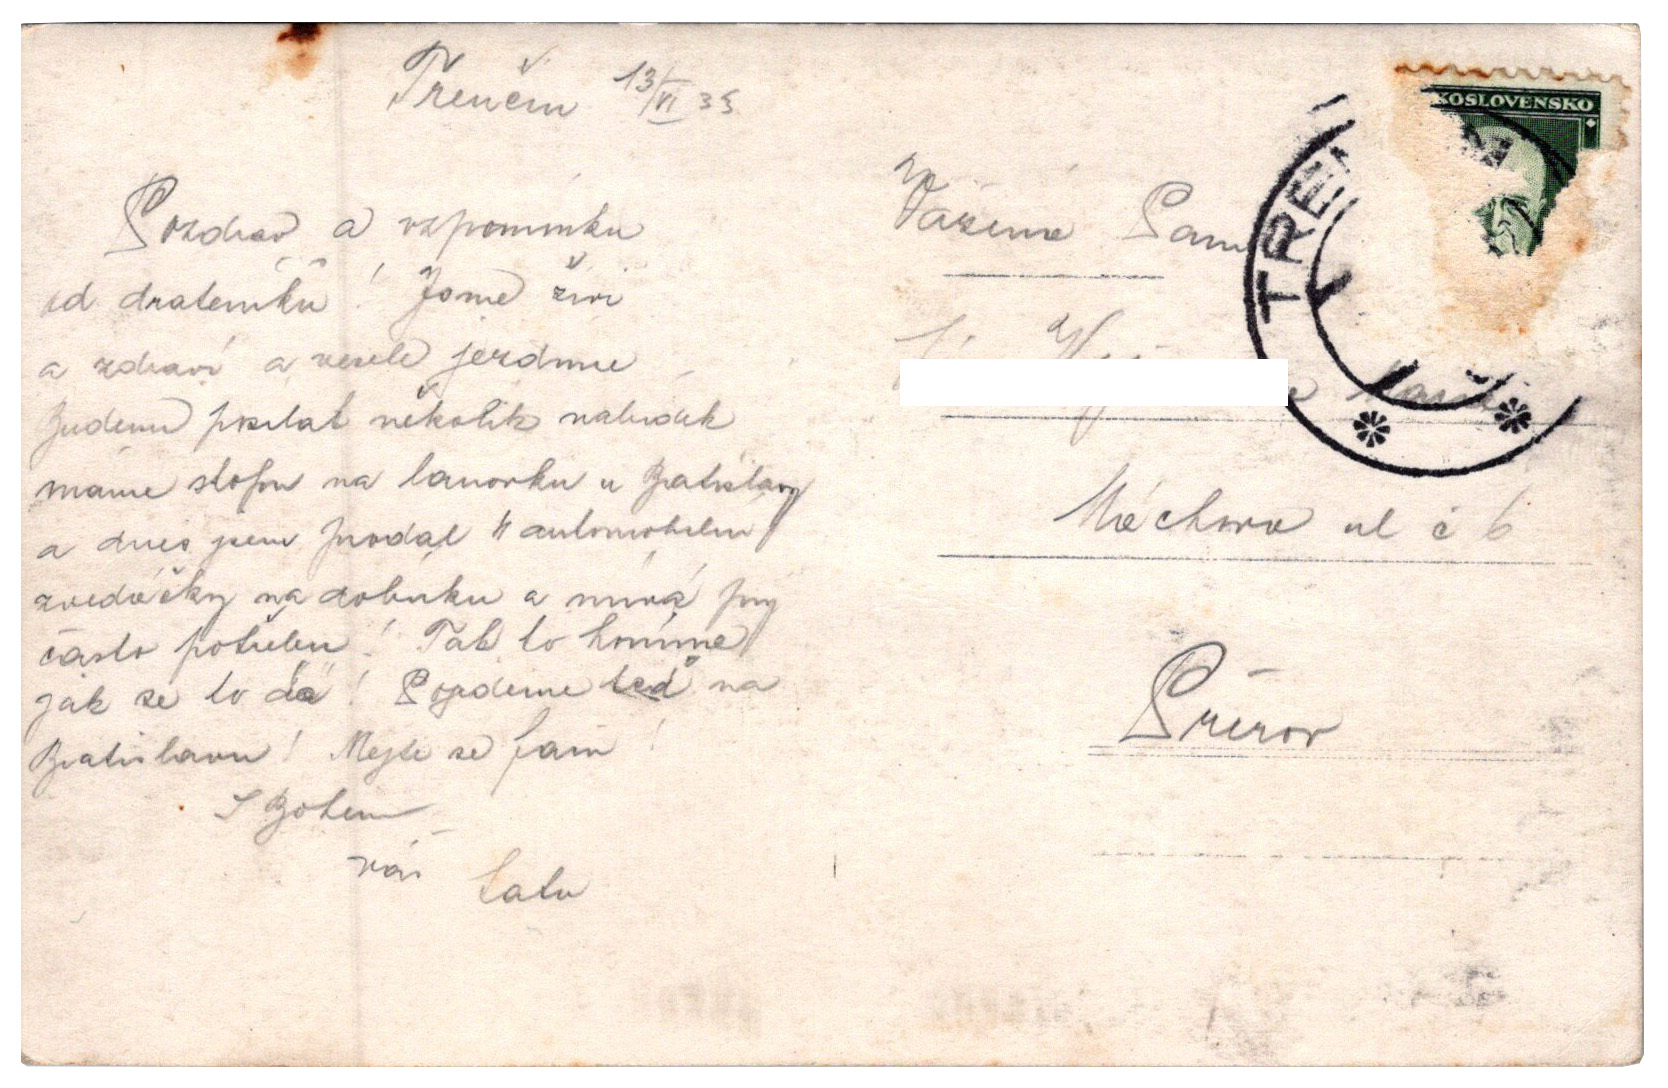 Trenčin 13/VI 35
Pozdrav a vzpomínku
od drateníků! Jsme živi
a zdraví a vesele jezdime
Budemu posilat několik nabidek
máme stopu na lanovku u Bratislavy
a dnes jsem prodal 4 automobileni
zvedáčky na zobínku a mívá prý
často potřebu! Tak to honíme
jak se to dá! Pojedeme teď na
Bratislavu! Mejte se fain!
S Bohem
váš tatu
Vážená Paní
Máchova ul č 6
Přerov
KOSLOVENSKO
TREN